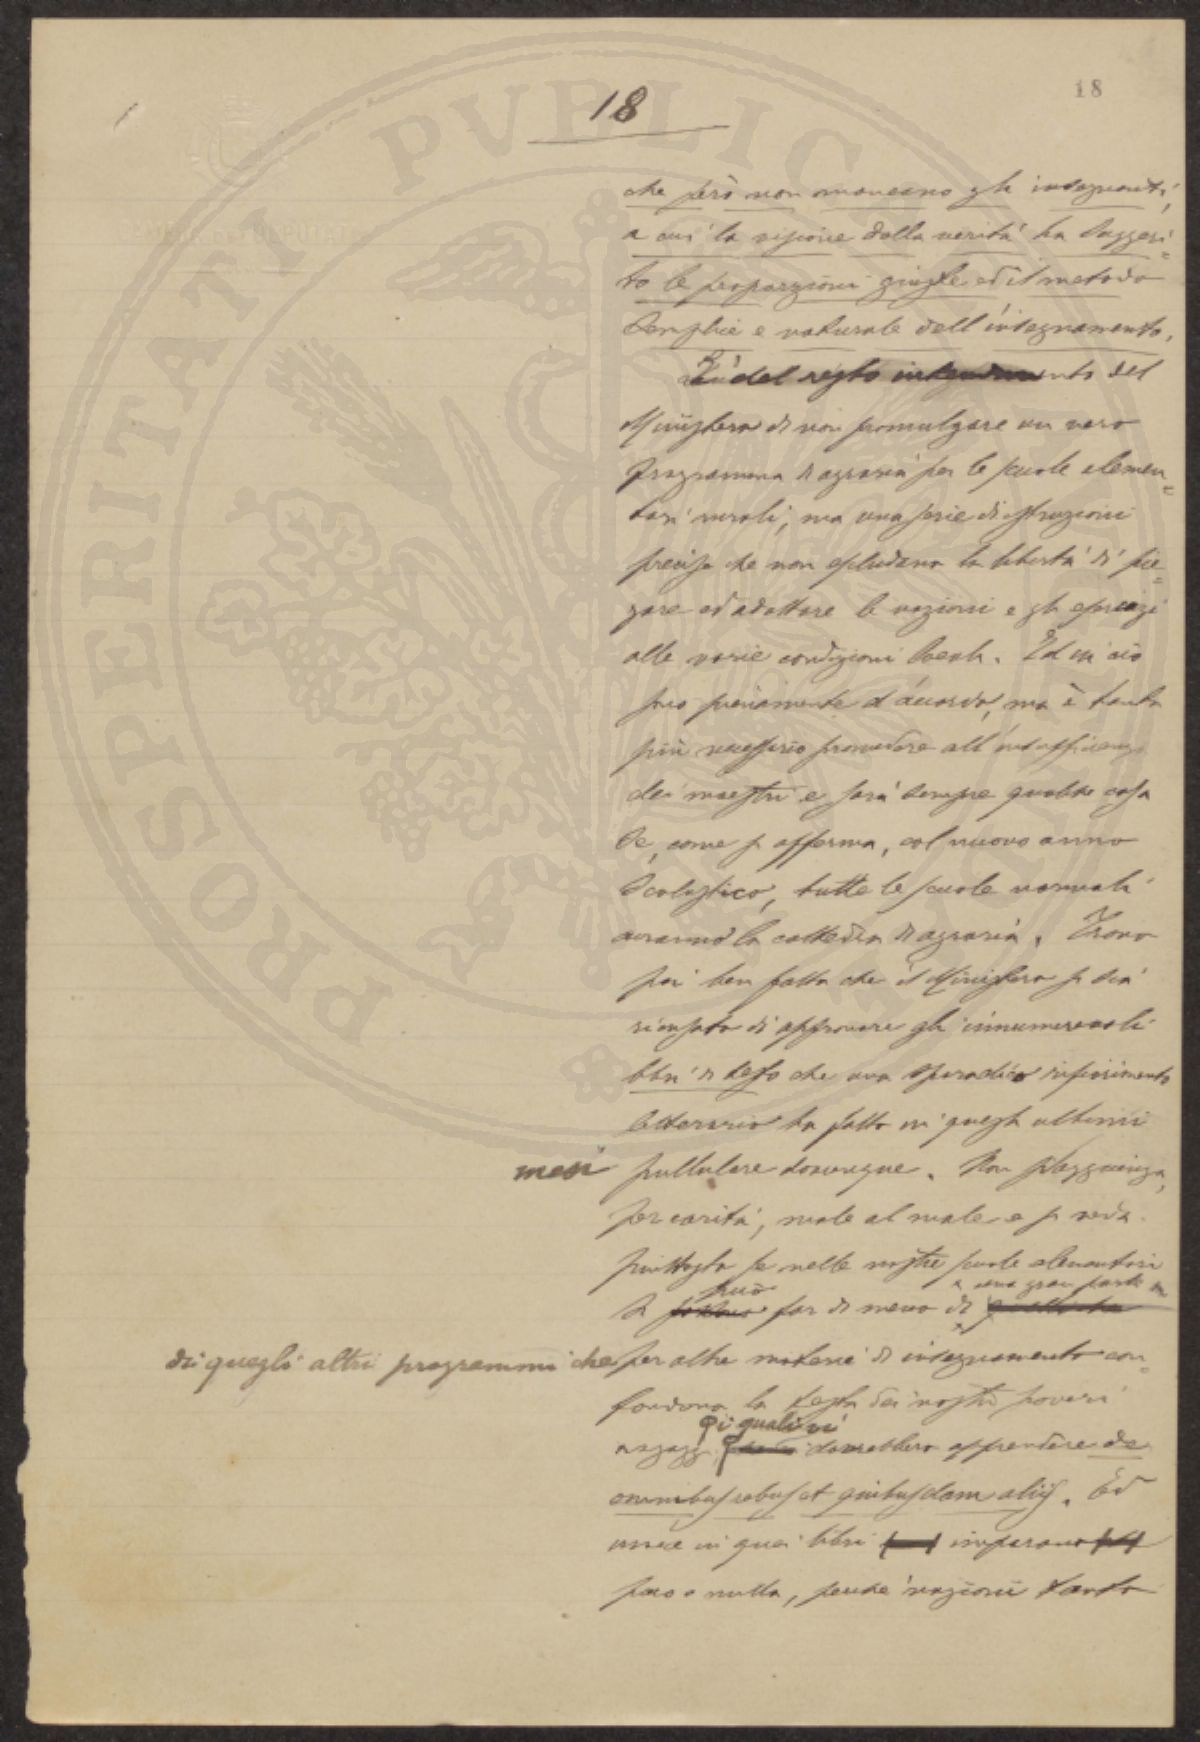 18
18
che però non mancano gli insegnanti,
a cui la visione della verità ha suggeri=
to le proporzioni giuste ed il metodo
semplice e naturale dell'insegnamento.
È del resto intendimento del
Ministero di non promulgare un vero
programma di agraria per le scuole elemen=
tari rurali, ma una serie di istruzioni
precise che non escludano la libertà di pie=
gare ed adattare le nozioni e gli esercizi
alle varie condizioni locali. Ed in ciò
sono pienamente d'accordo, ma è tanto
più necessario provvedere all'insufficienza
dei maestri e sarà sempre qualche cosa
se, come si afferma, col nuovo anno
scolastico, tutte le scuole normali
avranno la cattedra di agraria. Trovo
poi ben fatto che il Ministero si sia
ricusato di approvare gli innumerevoli
libri di testo che una sporadica rifiorimento
letterario ha fatto in questi ultimi
mesi pullulare dovunque. Non s'aggiunga,
per carità, male al male e si veda
piuttosto se nelle nostre scuole elementari
può a una gran parte
si far di meno di
di quegli altri programmi che per altre materie di insegnamento con=
fondono la testa dei nostri poveri
i quali vi
ragazzi dovrebbero apprendere de
omnibus rebus et quibusdam aliis. Ed
invece in quei libri imparano
poco o nulla, perché nozioni tanto
PROSPERITATI PVBLICAE